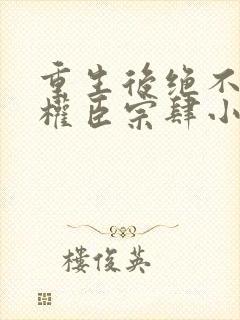 重生後绝不
權臣宗肆小
樓俊英